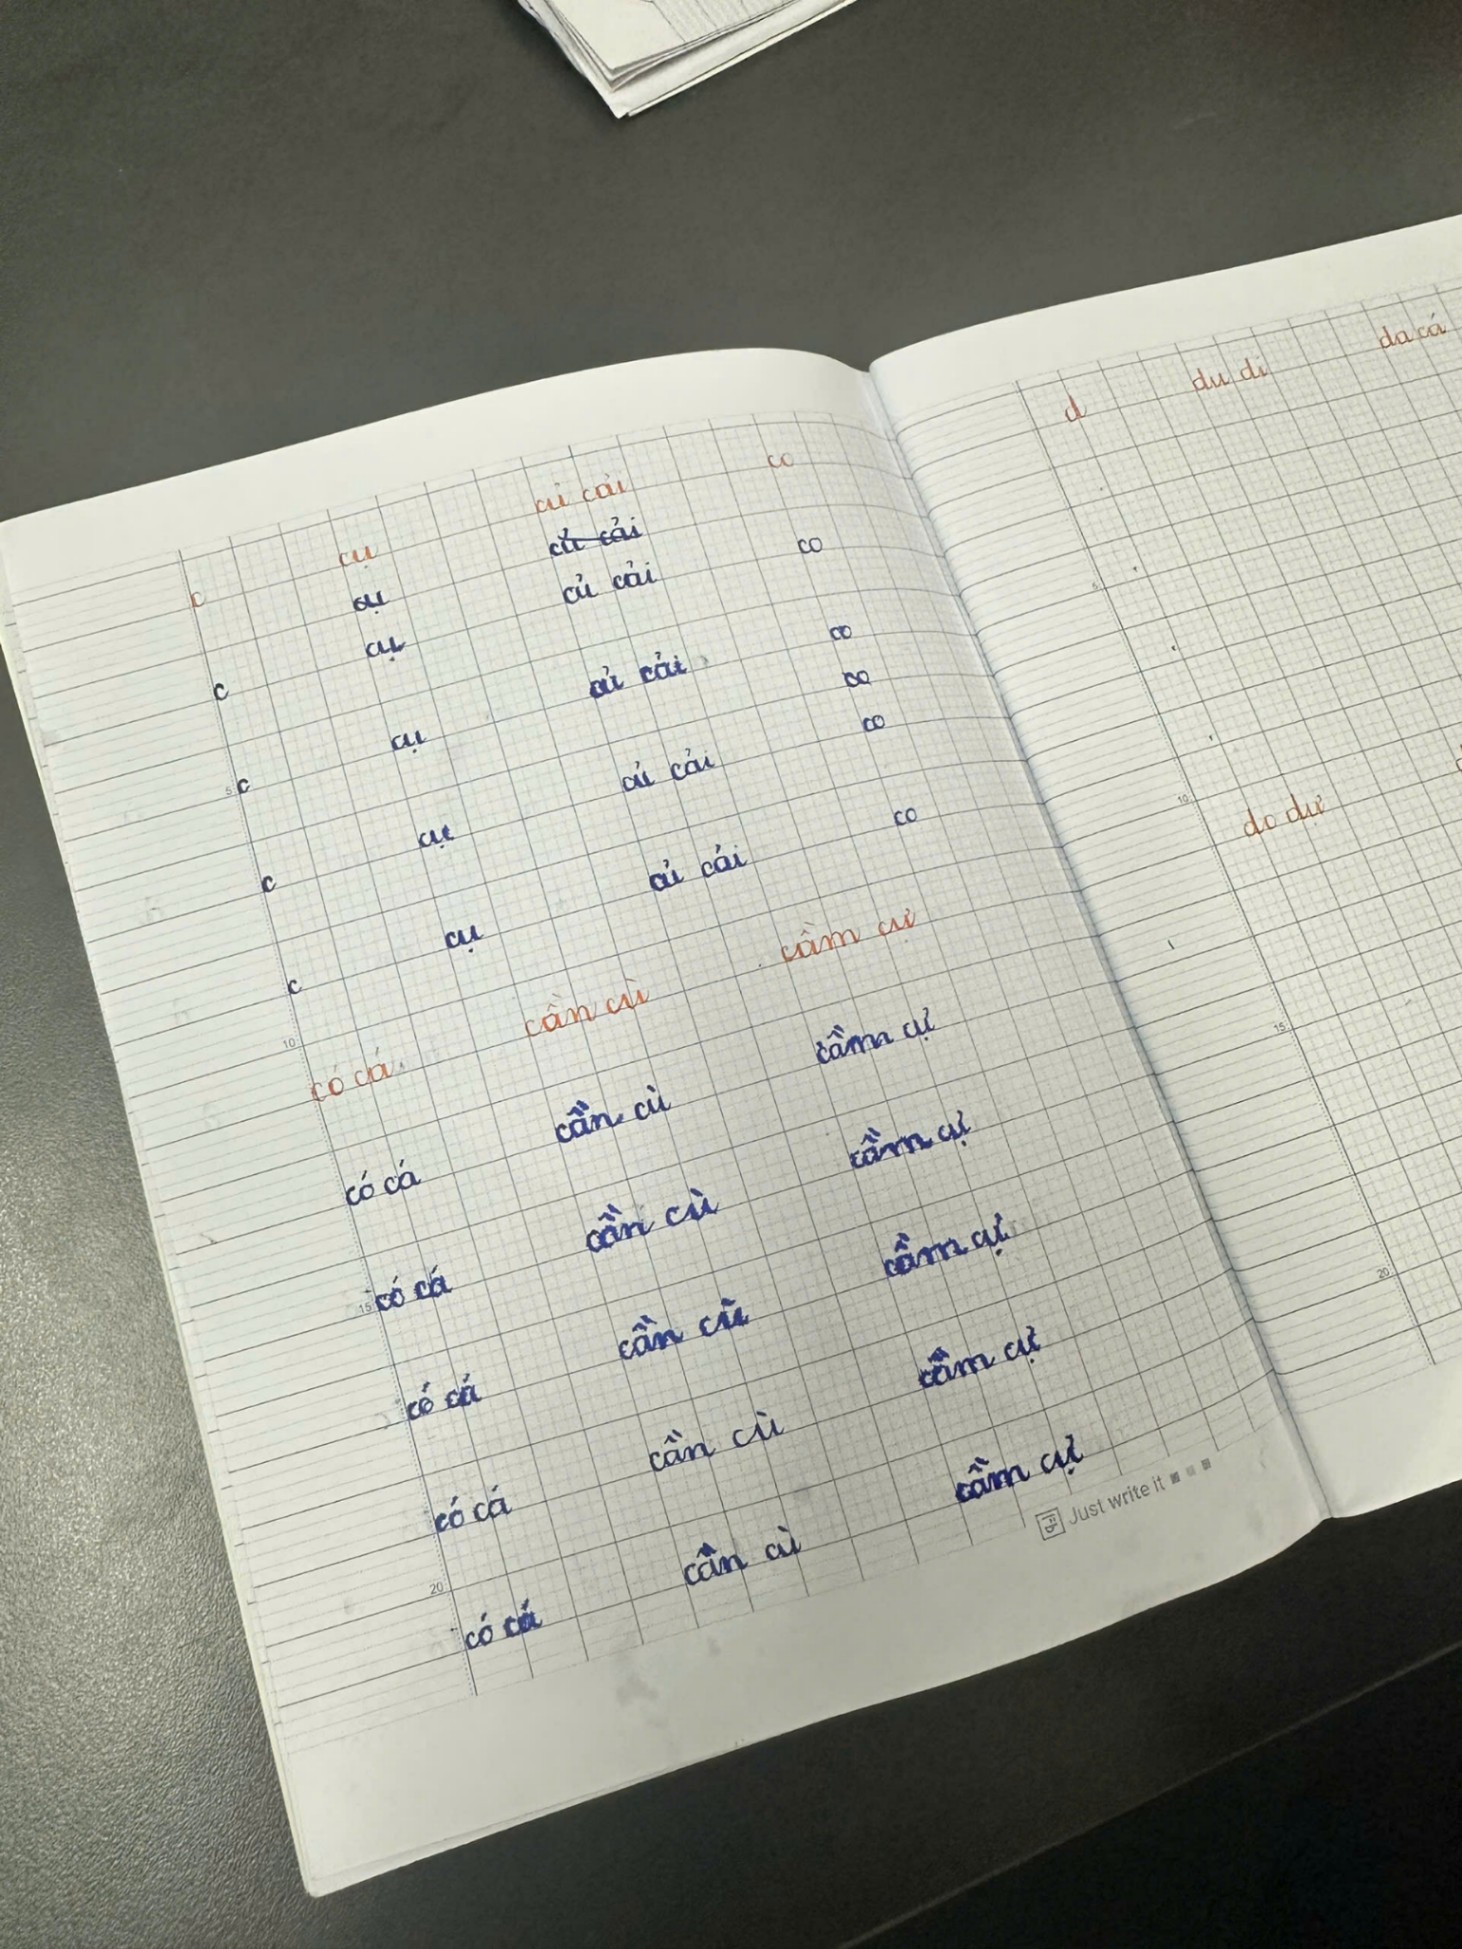 c cụ củ cải co
cụ củ cải
cụ củ cải co
c củ cải co
cụ co
c củ cải co
cụ
c củ cải co
cụ
c
có cá cần cù cầm cự
có cá cần cù cầm cự
có cá cần cù cầm cự
có cá cần cù cầm cự
có cá cần cù cầm cự
có cá cần cù cầm cự
5
10
15
20
Just write it
d du di da cá
do dự
5
10
15
20